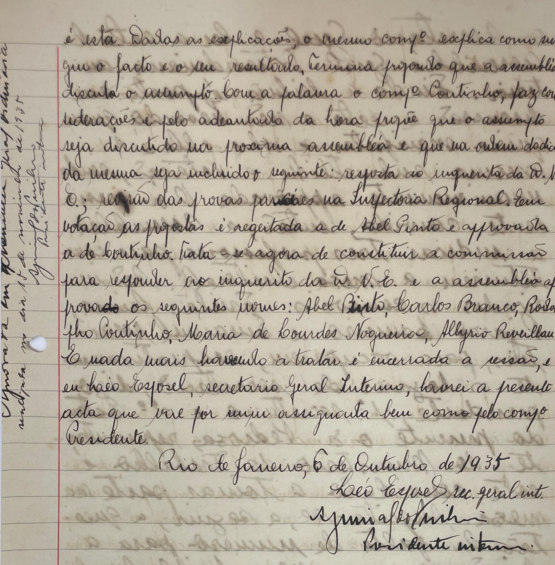 é esta Dadas as explicações, o mesmo compº explica como
que o facto e o seu resultado, termina propondo que a assembléa
discuta o assumpto. Com a palavra o compº Coutinho, faz con
siderações e pelo adeantado da hora propõe que o assumpto
seja discutido na proxima assembléa e que na ordem do dia
da mesma seja incluido o seguinte: resposta ao inquerito da
E.; das provas na Inspectoria Regional. Em
votação as propostas é regeitada a de Abel Pinto e approvada
a de Coutinho. Trata-se agora de constituir a commissão
para responder ao inquerito da V. E. e a assembléa ap
prova os seguintes nomes: Abel Pinto, Carlos Branco, Rodol
pho Coutinho, Maria de Lourdes Nogueira, Reveilleau
E nada mais havendo à tratar é encerrada a sessão, e
eu Laéo Esposel, secretario Geral Interino, lavrei a presente
acta que vae por mim assignada bem como pelo compº
Presidente.
Rio de Janeiro, 6 de Outubro de 1935
Laéo Esposel sec. geral int.
Presidente interino
em assembléa geral ordinaria
no dia de 1935
Presidente interino